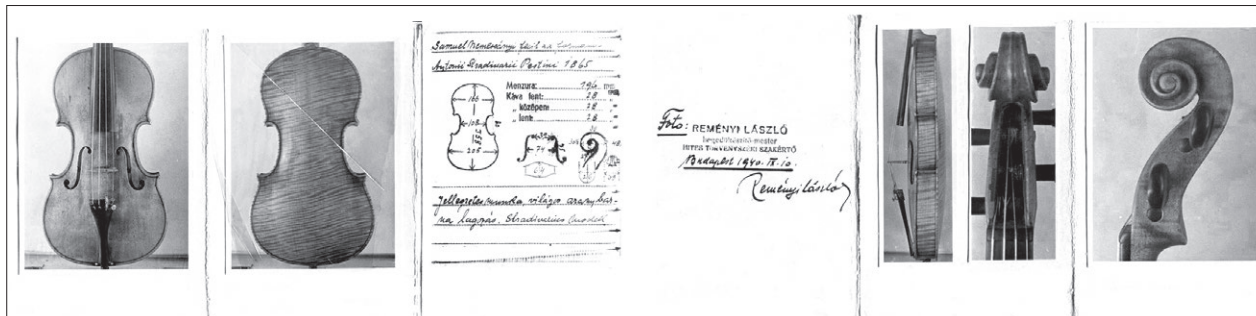 Samuel Nemessányi fecit ad
Antonii Stradivarii Pestini 1865
Menzura: 194 mm
Káva fent: 28
„ középen 28
„ lent: 28
166
108
205
74
Jellegzetes munka, világos arany bar-
na lakkozás. Stradivarius modell
Foto: REMÉNYI LÁSZLÓ
hangszerkészítő-mester
HITES TÖRVÉNYSZÉKI SZAKÉRTŐ
Budapest 1940. IX. 10.
Reményi László